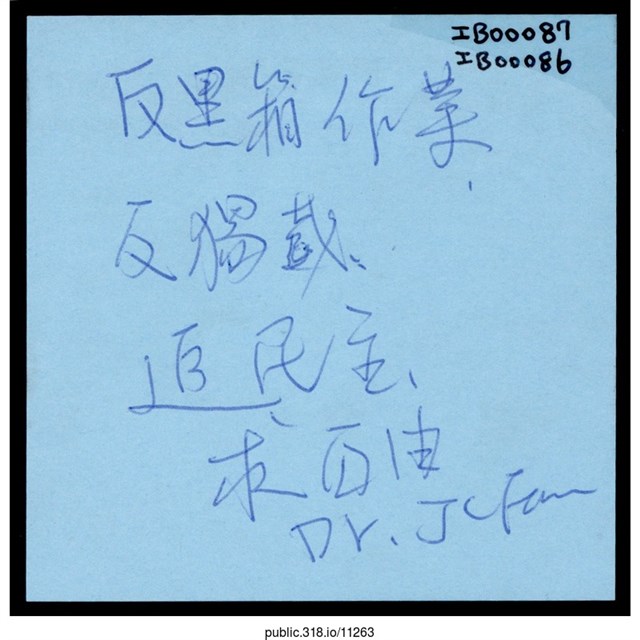 IB00087
IB00086
反黑箱作業,
反獨裁、
追民主、
求自由
Dr. JC Fann
public.318.io/11263